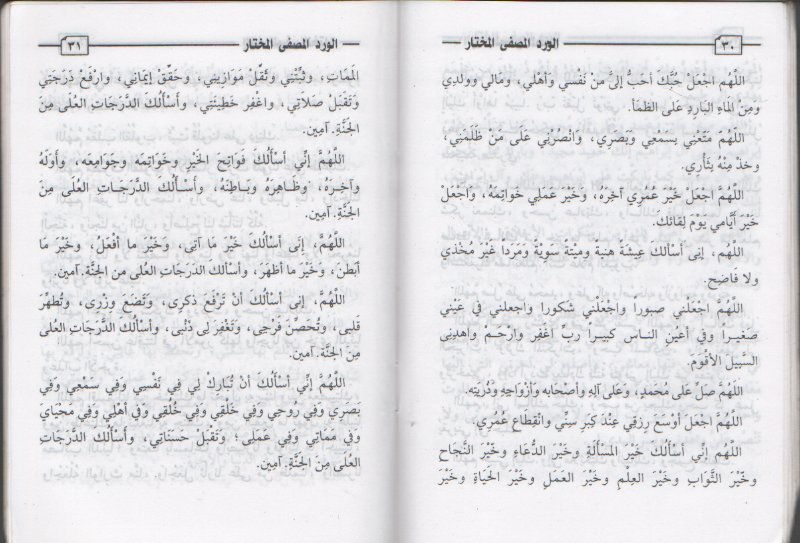 ٣٠ الورد المصفى المختار
اللَّهُمَّ اجْعَلْ حُبَّكَ أَحَبَّ إِلَيَّ مِنْ نَفْسِي وَأَهْلِي، وَمَالِي وَوَلَدِي
وَمِنَ المَاءِ البَارِدِ عَلَى الظَّمَأِ.
اللَّهُمَّ مَتِّعْنِي بِسَمْعِي وَبَصَرِي، وَانْصُرْنِي عَلَى مَنْ ظَلَمَنِي،
وَخُذْ مِنْهُ بِثَأْرِي.
اللَّهُمَّ اجْعَلْ خَيْرَ عُمُرِي آخِرَهُ، وَخَيْرَ عَمَلِي خَوَاتِمَهُ، وَاجْعَلْ
خَيْرَ أَيَّامِي يَوْمَ لِقَائِكَ.
اللَّهُم، إنى أَسْأَلُكَ عِيشَةً هَنِيةً وَمِيتَةً سَوِيَّةً وَمَرَدًّا غَيْرَ مُخْذِي
ولا فَاضِحٍ.
اللَّهُمَّ اجْعَلْنِي صبورا وَاجْعَلْنِي شكورا واجعلني في عَيْنِي
صَغيراً وفي أَعْيُنِ الناس كَبيراً رَبِّ اغْفِر وَارْحَمْ وَاهْدِنِى
السَّبِيلَ الأَقْوَمَ.
اللَّهُمَّ صَلِّ عَلَى مُحَمَّدٍ، وَعَلَى آلِهِ وأَصْحَابِه وَأَزْوَاجِهِ وَذُرِّيَّتِه.
اللَّهُمَّ اجْعَلْ أَوْسَعَ رِزقِي عِنْدَ كِبَرِ سِنِّي وانْقِطَاعِ عُمُرِي.
اللَّهُمَّ إِنِّي أَسْأَلُكَ خَيْرَ المَسْأَلَةِ وَخَيْرَ الدُّعَاءِ وخَيْرَ النَّجَاحِ
وَخَيْرَ الثَّوَابِ وَخَيْرَ العِلْمِ وَخَيْرَ العَمَلِ وَخَيْرَ الحَيَاةِ وَخَيْرَ
الورد المصفى المختار ٣١
المَمَاتِ، وثَبِّتْنِي وَثَقِّلْ مَوَازِينِي، وَحَقِّقْ إِيمَانِي، وَارْفَعْ دَرَجَتِي
وَتَقَبَّلْ صَلَاتِي، وَاغْفِر خَطِيئَتِي، وَأَسْأَلُكَ الدَّرَجَاتِ العُلَى مِنَ
الجَنَّةِ. آمِين.
اللَّهُمَّ إِنِّي أَسْأَلُكَ فَوَاتِحَ الخَيْرِ وَخَوَاتِمَهُ وَجَوَامِعَه، وَأَوَّلَهُ
وَآخِرَهُ، وَظَاهِرَهُ وَبَاطِنَهُ، وَأَسْأَلُكَ الدَّرَجَاتِ العُلَى مِنَ
الجَنَّةِ. آمين.
اللَّهُمَّ، إِنى أَسْأَلُكَ خَيْرَ مَا آتِى، وَخَيْرَ ما أَفْعَلُ، وَخَيْرَ مَا
أبَطَنَ، وَخَيْرَ ما أظْهَرَ، وَأَسْأَلُكَ الدَّرَجَاتِ العُلَى من الجَنَّةِ. آمين.
اللَّهُمَّ، إِنِّى أَسْأَلُكَ أَنْ تَرْفَعَ ذِكْرِى، وَتَضَعَ وِزْرِى، وَتُطَهِّرَ
قَلْبِى، وتُحَصِّنَ فَرْجِى، وَتَغْفِرَ لِى ذَنْبِى، وأَسْأَلُكَ الدَّرَجَاتِ العُلَى
مِنَ الجَنَّةِ. آمين.
اللَّهُمَّ إِنِّي أَسْأَلُكَ أَنْ تُبَارِكَ لِي فِي نَفْسِي وَفِي سَمْعِي وَفِي
بَصَرِي وَفِي رُوحِي وَفِي خَلْقِي وَفِي خُلُقِي وَفِي أَهْلِي وَفِي مَحْيَايَ
وَفِي مَمَاتِي وَفِي عَمَلِى؛ وَتَقَبَّلْ حَسَنَاتِي، وَأَسْأَلُكَ الدَّرَجَاتِ
العُلَى مِنَ الجَنَّةِ. آمِين.